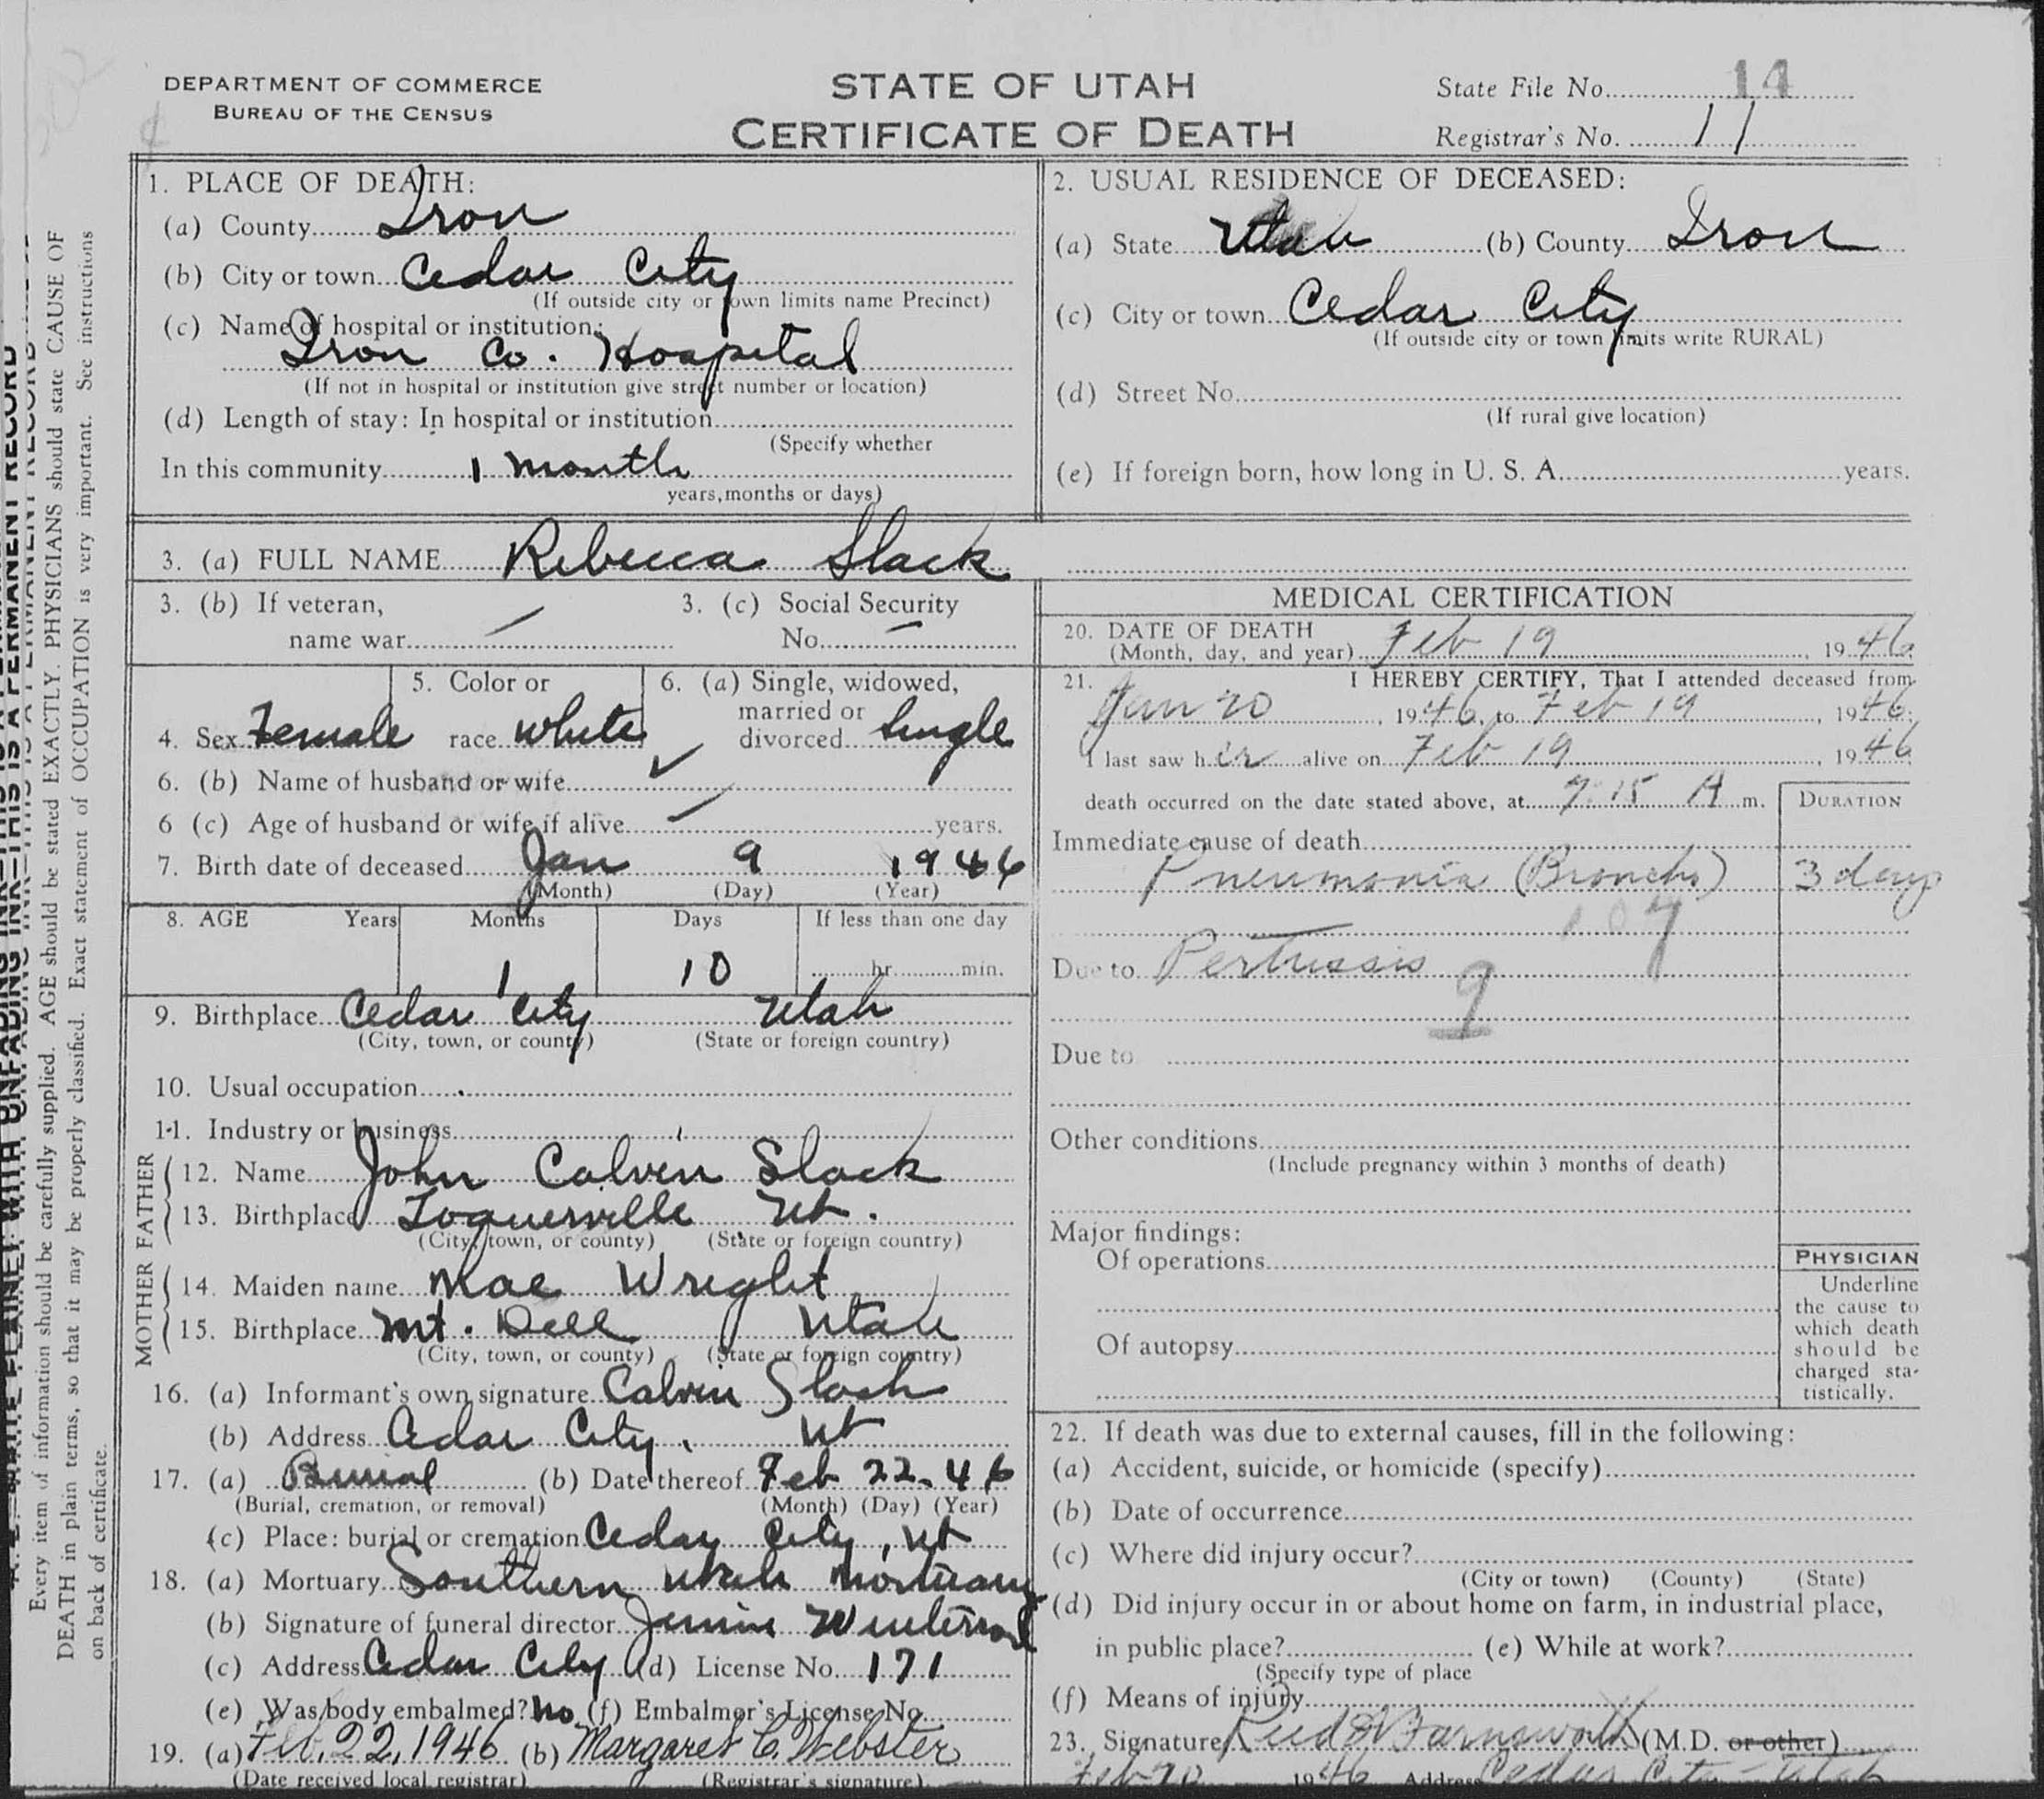 DEPARTMENT OF COMMERCE
BUREAU OF THE CENSUS
STATE OF UTAH
CERTIFICATE OF DEATH
State File No. 14
Registrar's No. 11
1. PLACE OF DEATH:
(a) County Iron
(b) City or town Cedar City
(If outside city or town limits name Precinct)
(c) Name of hospital or institution:
Iron Co. Hospital
(If not in hospital or institution give street number or location)
(d) Length of stay: In hospital or institution
(Specify whether
In this community 1 month
years, months or days)
2. USUAL RESIDENCE OF DECEASED:
(a) State Utah (b) County Iron
(c) City or town Cedar City
(If outside city or town limits write RURAL)
(d) Street No.
(If rural give location)
(e) If foreign born, how long in U. S. A. years.
3. (a) FULL NAME Rebecca Slack
3. (b) If veteran,
name war
3. (c) Social Security
No.
4. Sex Female
5. Color or
race White
6. (a) Single, widowed,
married or
divorced Single
6. (b) Name of husband or wife
6 (c) Age of husband or wife if alive years.
7. Birth date of deceased Jan 9 1946
(Month) (Day) (Year)
8. AGE Years Months Days If less than one day
1 10 hr. min.
9. Birthplace Cedar City Utah
(City, town, or county) (State or foreign country)
10. Usual occupation
11. Industry or business
FATHER
12. Name John Calvin Slack
13. Birthplace Toquerville Ut.
(City, town, or county) (State or foreign country)
MOTHER
14. Maiden name Mae Wright
15. Birthplace Mt. Dell Utah
(City, town, or county) (State or foreign country)
16. (a) Informant's own signature Calvin Slack
(b) Address Cedar City, Ut
17. (a) Burial (b) Date thereof Feb 22-46
(Burial, cremation, or removal) (Month) (Day) (Year)
(c) Place: burial or cremation Cedar City, Ut
18. (a) Mortuary Southern Utah Mortuary
(b) Signature of funeral director
(c) Address Cedar City (d) License No. 171
(e) Was body embalmed? No (f) Embalmer's License No.
19. (a) Feb. 22, 1946 (b) Margaret C. Webster
(Date received local registrar) (Registrar's signature)
MEDICAL CERTIFICATION
20. DATE OF DEATH
(Month, day, and year) Feb 19, 1946
21. I HEREBY CERTIFY, That I attended deceased from
Jan 20, 1946, to Feb 19, 1946
I last saw her alive on Feb 19, 1946
death occurred on the date stated above, at 7:15 A m.
DURATION
Immediate cause of death
Pneumonia (Broncho) 3 days
107
Due to Pertussis
9
Due to
Other conditions
(Include pregnancy within 3 months of death)
Major findings:
Of operations
Of autopsy
PHYSICIAN
Underline
the cause to
which death
should be
charged sta-
tistically.
22. If death was due to external causes, fill in the following:
(a) Accident, suicide, or homicide (specify)
(b) Date of occurrence
(c) Where did injury occur?
(City or town) (County) (State)
(d) Did injury occur in or about home on farm, in industrial place,
in public place? (e) While at work?
(Specify type of place
(f) Means of injury
23. Signature Farnsworth (M.D. or other)
Feb 20 1946 Address Cedar City Utah
Every item of information should be carefully supplied. AGE should be stated EXACTLY. PHYSICIANS should state CAUSE OF
DEATH in plain terms, so that it may be properly classified. Exact statement of OCCUPATION is very important. See instructions
on back of certificate.